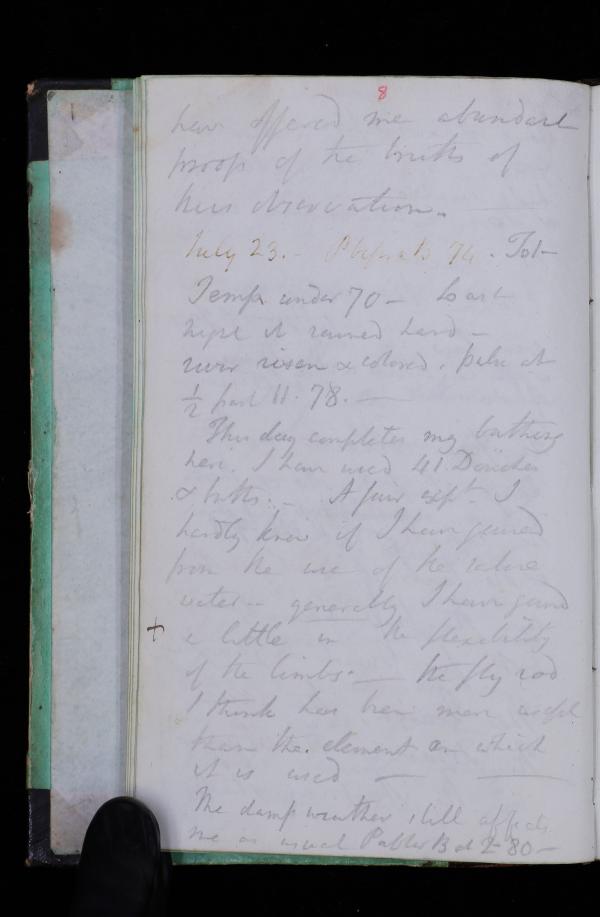 8
have offered me abundant
proofs of the truths of
this observation. —
July 23. - P before B 74. Tol—
Temp under 70 - Last
night it rained hard -
river risen & colored. pulse at
½ past 11. 78. —
This day completes my bathing
here. I have used 41 Douches
& baths. - A fair expt. I
hardly know if I have gained
from the use of the saline
water - generally I have gained
+ a little in the flexibility
of the limbs. — the fly rod
I think has been more useful
than the element on which
it is used — —
The damp weather still affects
me as usual P after B at 2 - 80 -